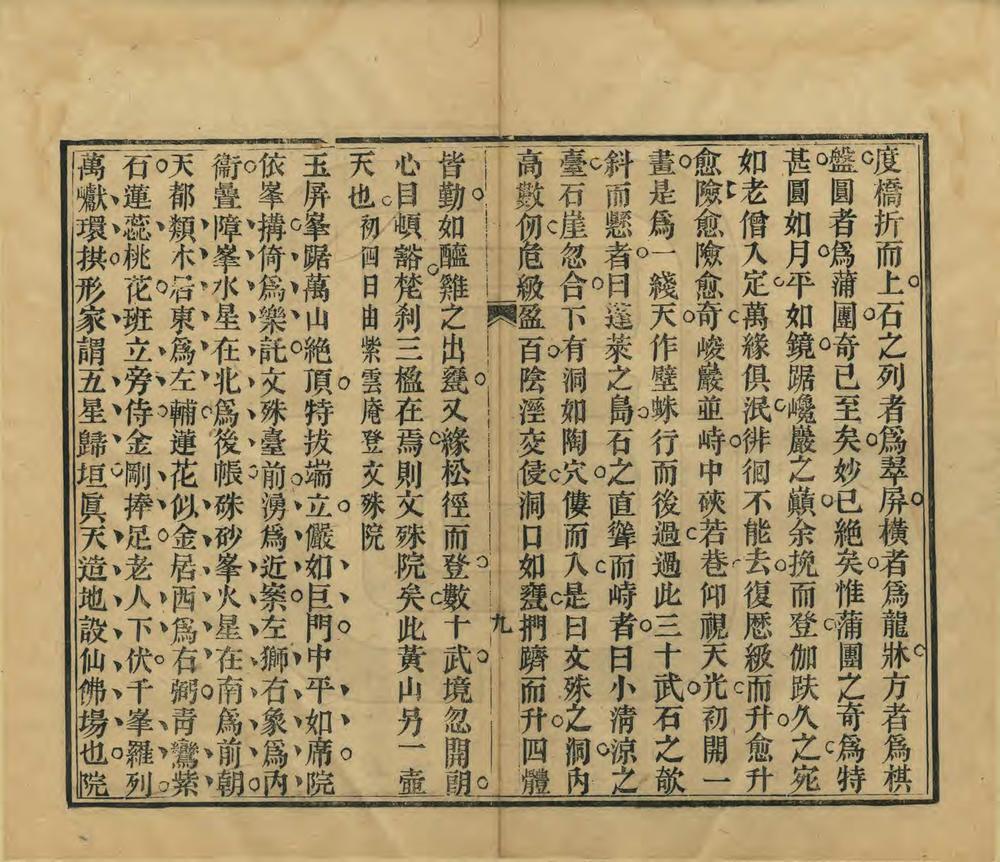 度橋折而上石之列者爲翠屏橫者爲龍牀方者爲棋
盤圓者爲蒲團奇已至矣妙已絕矣惟蒲團之奇爲特
甚圓如月平如鏡踞巉巖之巔余挽而登伽趺久之宛
如老僧入定萬緣俱泯徘徊不能去復歷級而升愈升
愈險愈險愈奇峻巖並峙中硤若巷仰視天光初開一
畫是爲一綫天作壁蛛行而後過過此三十武石之欹
斜而懸者曰蓬萊之島石之直聳而峙者曰小清涼之
臺石崖忽合下有洞如陶穴僂而入是曰文殊之洞內
高數仞危級盈百陰溼交侵洞口如甕捫躋而升四體
九
皆勤如醯雞之出甕又緣松徑而登數十武境忽開朗
心目頓豁梵刹三楹在焉則文殊院矣此黃山另一壺
天也初四日由紫雲庵登文殊院
玉屏峯踞萬山絕頂特拔端立儼如巨門中平如席院
依峯搆倚爲樂託文殊臺前湧爲近案左獅右象爲內
衞疊障峯水星在北爲後帳硃砂峯火星在南爲前朝
天都類木居東爲左輔蓮花似金居西爲右弼青鸞紫
石蓮蕊桃花班立旁侍金剛捧足老人下伏千峯羅列
萬巘環拱形家謂五星歸垣眞天造地設仙佛場也院